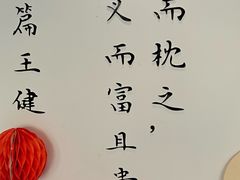 而枕之，
义而富且贵
篇王健